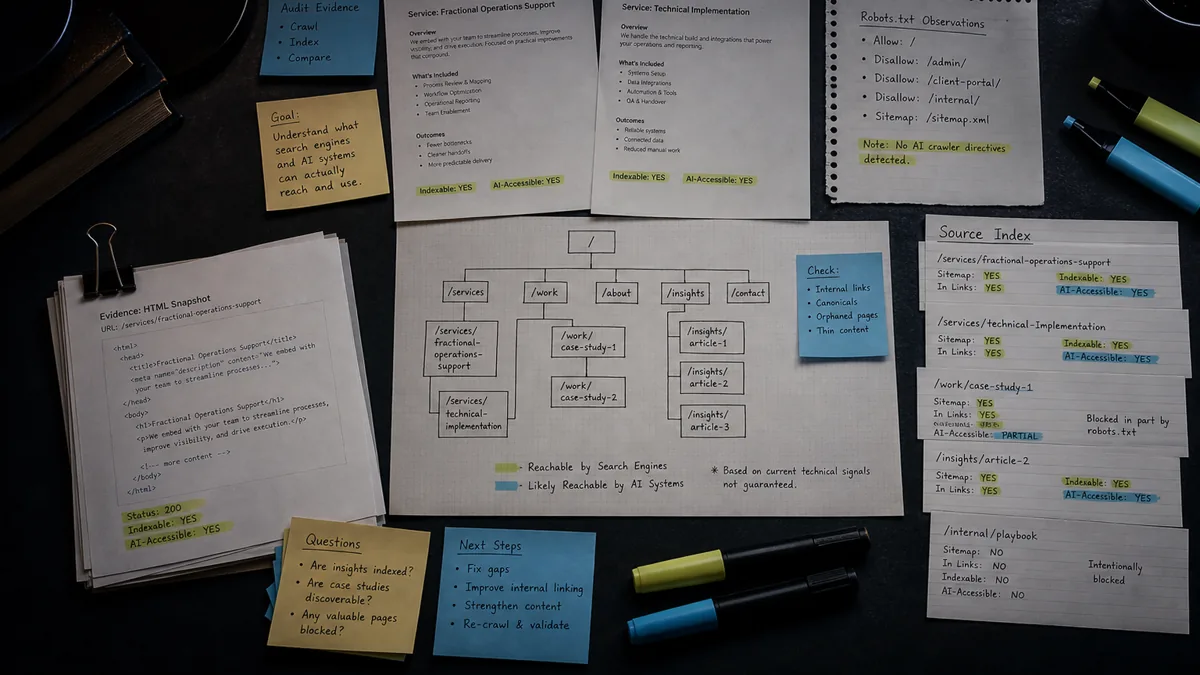 Audit Evidence
• Crawl
• Index
• Compare
Goal:
Understand what
search engines
and AI systems
can actually
reach and use.
Service: Fractional Operations Support
Overview
We embed with your team to streamline processes, improve
visibility, and drive execution. Focused on practical improvements
that compound.
What's Included
• Process Review & Mapping
• Workflow Optimization
• Operational Reporting
• Team Enablement
Outcomes
• Fewer bottlenecks
• Cleaner handoffs
• More predictable delivery
Indexable: YES AI-Accessible: YES
Service: Technical Implementation
Overview
We handle the technical build and integrations that power
your operations and reporting.
What's Included
• Systems Setup
• Data Integrations
• Automation & Tools
• QA & Handover
Outcomes
• Reliable systems
• Connected data
• Reduced manual work
Indexable: YES AI-Accessible: YES
Robots.txt Observations
• Allow: /
• Disallow: /admin/
• Disallow: /client-portal/
• Disallow: /internal/
• Sitemap: /sitemap.xml
Note: No AI crawler directives
detected.
Evidence: HTML Snapshot
URL: /services/fractional-operations-support
<html>
<head>
<title>Fractional Operations Support</title>
<meta name="description" content="We embed with
your team to streamline processes...">
</head>
<body>
<h1>Fractional Operations Support</h1>
<p>We embed with your team to streamline processes,
improve visibility, and drive execution.</p>
<!-- more content -->
</body>
</html>
Status: 200
Indexable: YES
AI-Accessible: YES
/
/services
/work
/about
/insights
/contact
/services/
fractional-
operations-
support
/services/
technical-
implementation
/work/
case-study-1
/work/
case-study-2
/insights/
article-1
/insights/
article-2
/insights/
article-3
- Reachable by Search Engines
- Likely Reachable by AI Systems
* Based on current technical signals
not guaranteed.
Check:
• Internal links
• Canonicals
• Orphaned pages
• Thin content
Source Index
/services/fractional-operations-support
Sitemap: YES Indexable: YES
In Links: YES AI-Accessible: YES
/services/technical-Implementation
Sitemap: YES Indexable: YES
In Links: YES AI-Accessible: YES
/work/case-study-1
Sitemap: YES
In Links: YES
AI-Accessible: PARTIAL
Blocked in part by
robots.txt
/insights/article-2
Sitemap: YES Indexable: YES
In Links: YES AI-Accessible: YES
/internal/playbook
Sitemap: NO
In Links: NO
Indexable: NO
AI-Accessible: NO
Intentionally
blocked
Questions
• Are insights indexed?
• Are case studies
discoverable?
• Any valuable pages
blocked?
Next Steps
• Fix gaps
• Improve internal linking
• Strengthen content
• Re-crawl & validate